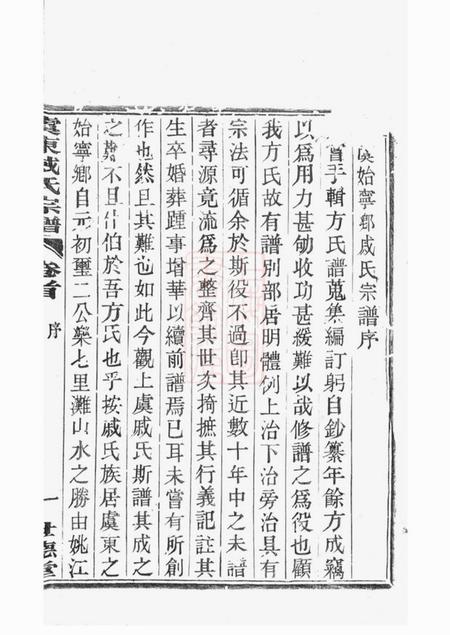 始寧鄉戚氏宗譜序
曾手輯方氏譜蒐集編訂躬自鈔纂年餘方成竊
以爲用力甚劬收功甚緩難以哉修譜之爲役也顧
我方氏故有譜別部居明體例上治下治旁治具有
宗法可循余於斯役不過卽其近數十年中之未譜
者尋源竟流爲之整齊其世次掎摭其行義記註其
生卒婚葬踵事增華以續前譜焉已耳未嘗有所創
作也然且其難也如此今觀上虞戚氏斯譜其成之
之難不且什伯於吾方氏也乎按戚氏族居虞東之
始寧鄉自元初璽二公樂七里灘山水之勝由姚江
虞東戚氏宗譜
卷首
序
一
世德堂